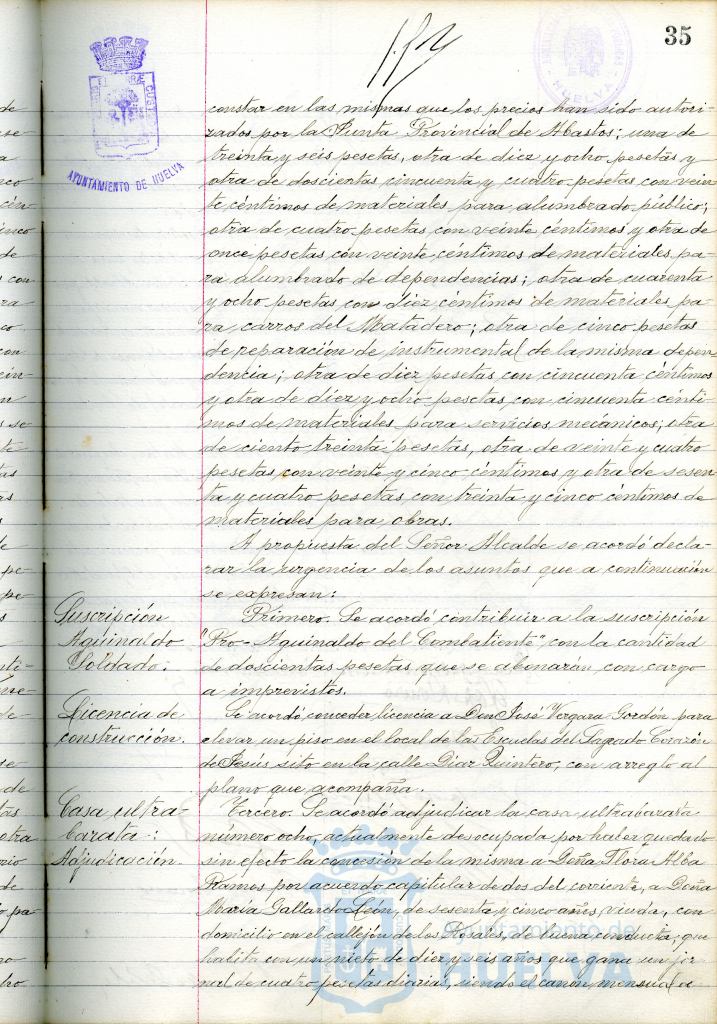 35
HUELVA
AYUNTAMIENTO DE HUELVA
constar en las mismas que los precios han sido autori-
zados por la Junta Provincial de Abastos; una de
treinta y seis pesetas, otra de diez y ocho pesetas y
otra de doscientas cincuenta y cuatro pesetas con vein-
te céntimos de materiales para alumbrado público;
otra de cuatro pesetas con veinte céntimos y otra de
once pesetas con veinte céntimos de materiales pa-
ra alumbrado de dependencias; otra de cuarenta
y ocho pesetas con diez céntimos de materiales pa-
ra carros del Matadero; otra de cinco pesetas
de reparación de instrumental de la misma depen-
dencia; otra de diez pesetas con cincuenta céntimos
y otra de diez y ocho pesetas con cincuenta cénti-
mos de materiales para servicios mecánicos; otra
de ciento treinta pesetas, otra de veinte y cuatro
pesetas con veinte y cinco céntimos y otra de sesen-
ta y cuatro pesetas con treinta y cinco céntimos de
materiales para obras.
A propuesta del Señor Alcalde se acordó decla-
rar la urgencia de los asuntos que a continuación
se expresan:
Suscripción
Aguinaldo
Soldado.
Primero. Se acordó contribuir a la suscripción
"Pro-Aguinaldo del Combatiente", con la cantidad
de doscientas pesetas, que se abonarán con cargo
a imprevistos.
Licencia de
construcción.
Se acordó conceder licencia a Don José Vergara Gordón para
elevar un piso en el local de las Escuelas del Sagrado Corazón
de Jesús sito en la calle Díaz Quintero, con arreglo al
plano que acompaña.
Casa ultra-
barata:
Adjudicación
Tercero. Se acordó adjudicar la casa ultrabarata
número ocho, actualmente desocupada por haber quedado
sin efecto la concesión de la misma a Doña Flora Alba
Ramos por acuerdo capitular de dos del corriente, a Doña
María Gallardo León, de sesenta y cinco años, viuda, con
domicilio en el callejón de los Rosales, de buena conducta, que
habita con un nieto de diez y seis años que gana un jor-
nal de cuatro pesetas diarias, siendo el canon mensual a
Ayuntamiento de
HUELVA